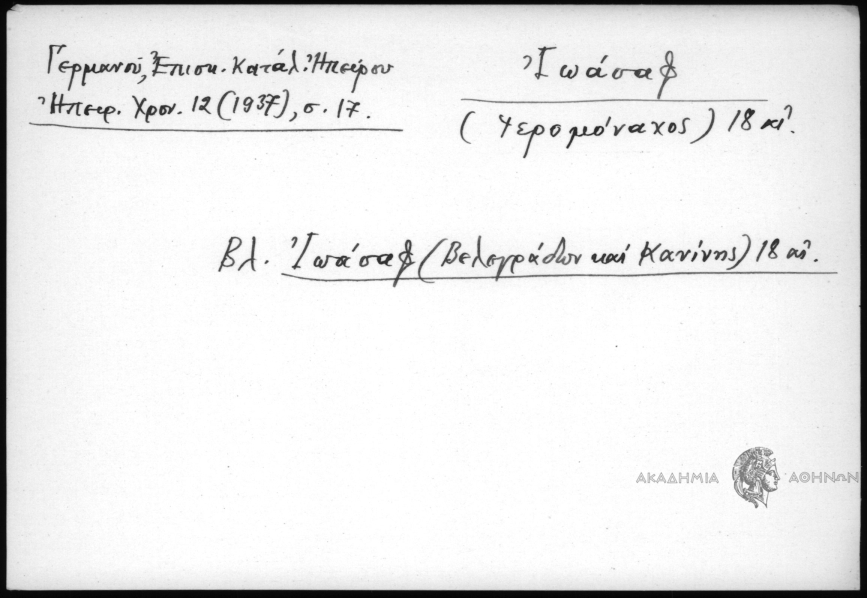 Γερμανοῦ, Ἐπισκ. Κατάλ. Ἠπείρου
Ἠπειρ. Χρον. 12 (1937), σ. 17.
Ἰωάσαφ
(Ἱερομόναχος) 18 αἰ.
Βλ. Ἰωάσαφ (Βελεγράδων καί Κανίνης) 18 αἰ.
ΑΚΑΔΗΜΙΑ ΑΘΗΝΩΝ